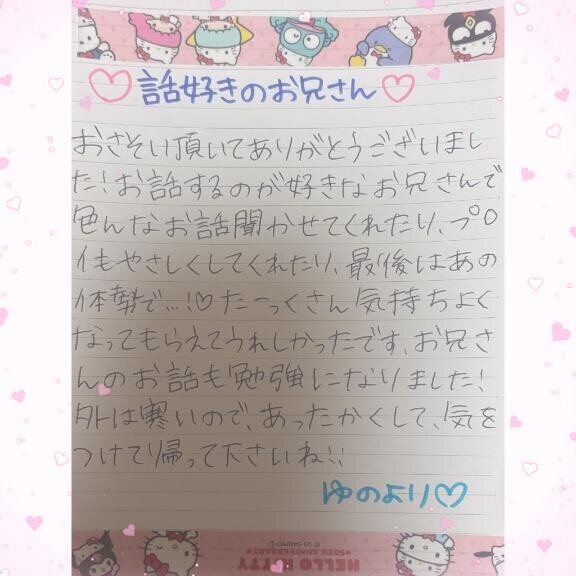 話好きのお兄さん
おさそい頂いてありがとうございまし
た!お話するのが好きなお兄さんで
色んなお話聞かせてくれたり、プロ
イもやさしくしてくれたり、最後はあの
体勢で...!♡たーっくさん気持ちよく
なってもらえてうれしかったです。お兄さ
んのお話も勉強になりました!
外は寒いので、あったかくして、気を
つけて帰って下さいね!!
ゆのより♡
HELLO KITTY